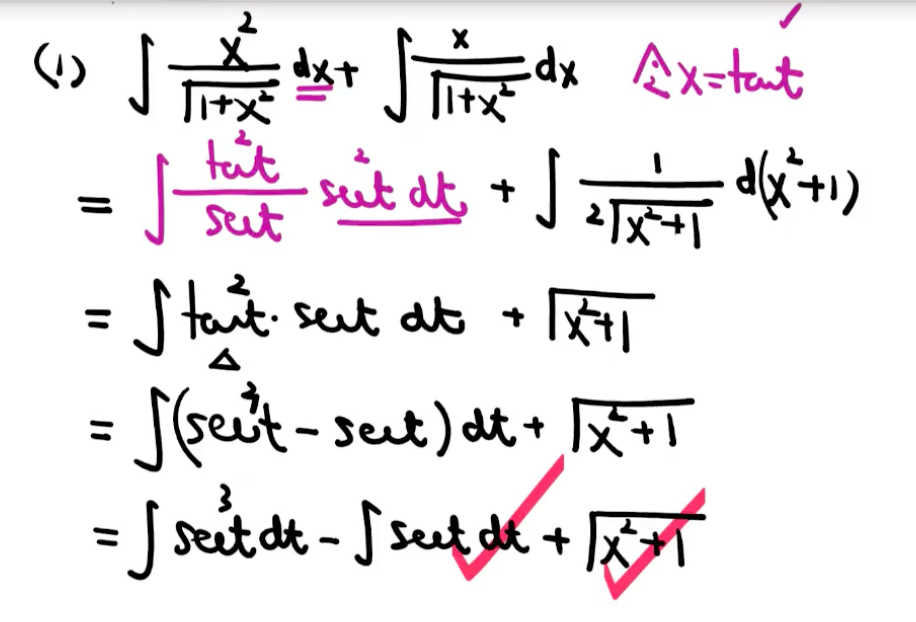 (1) ∫ x²/√(1+x²) dx + ∫ x/√(1+x²) dx 令x=tant
= ∫ tan²t/sect sec²t dt + ∫ 1/(2√(x²+1)) d(x²+1)
= ∫ tan²t · sect dt + √(x²+1)
= ∫(sec³t - sect)dt + √(x²+1)
= ∫ sec³t dt - ∫ sect dt + √(x²+1)